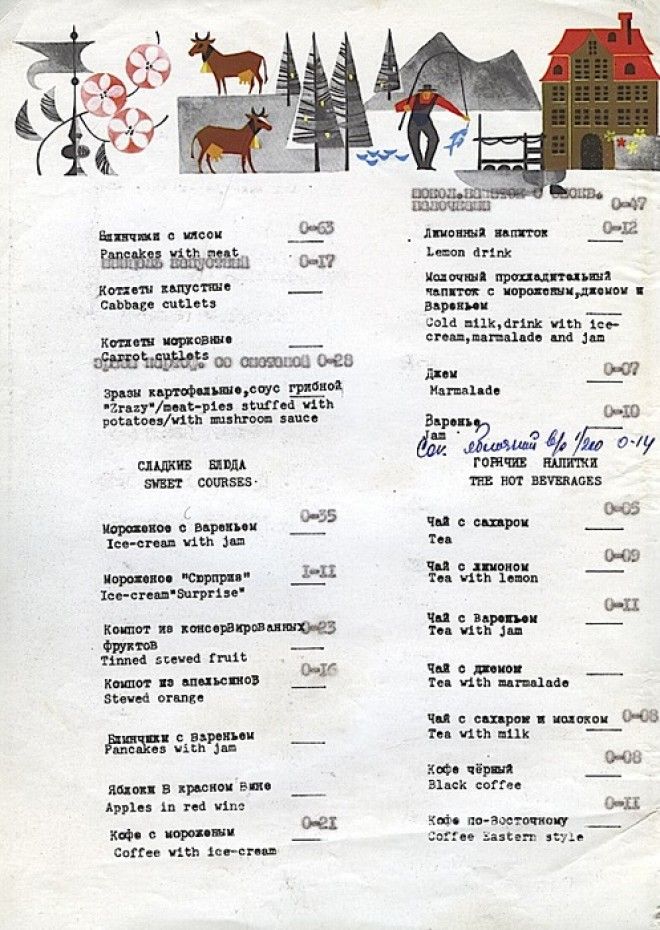 Блинчики с мясом 0-63
Pancakes with meat
капустный 0-17
Котлеты капустные
Cabbage cutlets
Котлеты морковные
Carrot cutlets
со сметаной 0-28
Зразы картофельные,соус грибной
"Zrazy"/meat-pies stuffed with
potatoes/with mushroom sauce
СЛАДКИЕ БЛЮДА
SWEET COURSES
Мороженое с вареньем 0-35
Ice-cream with jam
Мороженое "Сюрприз" I-II
Ice-cream"Surprise"
Компот из консервированных 0-23
фруктов
Tinned stewed fruit
Компот из апельсинов 0-16
Stewed orange
Блинчики с вареньем
Pancakes with jam
Яблоки в красном вине
Apples in red wine
Кофе с мороженым 0-21
Coffee with ice-cream
напиток с
0-47
Лимонный напиток 0-12
Lemon drink
Молочный прохладительный
напиток с мороженым,джемом и
вареньем
Cold milk,drink with ice-
cream,marmalade and jam
Джем 0-07
Marmalade
Варенье 0-10
Jam
Сок яблочный 0-14
ГОРЯЧИЕ НАПИТКИ
THE HOT BEVERAGES
Чай с сахаром 0-05
Tea
Чай с лимоном 0-09
Tea with lemon
Чай с вареньем 0-II
Tea with jam
Чай с джемом
Tea with marmalade
Чай с сахаром и молоком 0-08
Tea with milk
Кофе чёрный 0-08
Black coffee
Кофе по-восточному 0-II
Coffee Eastern style